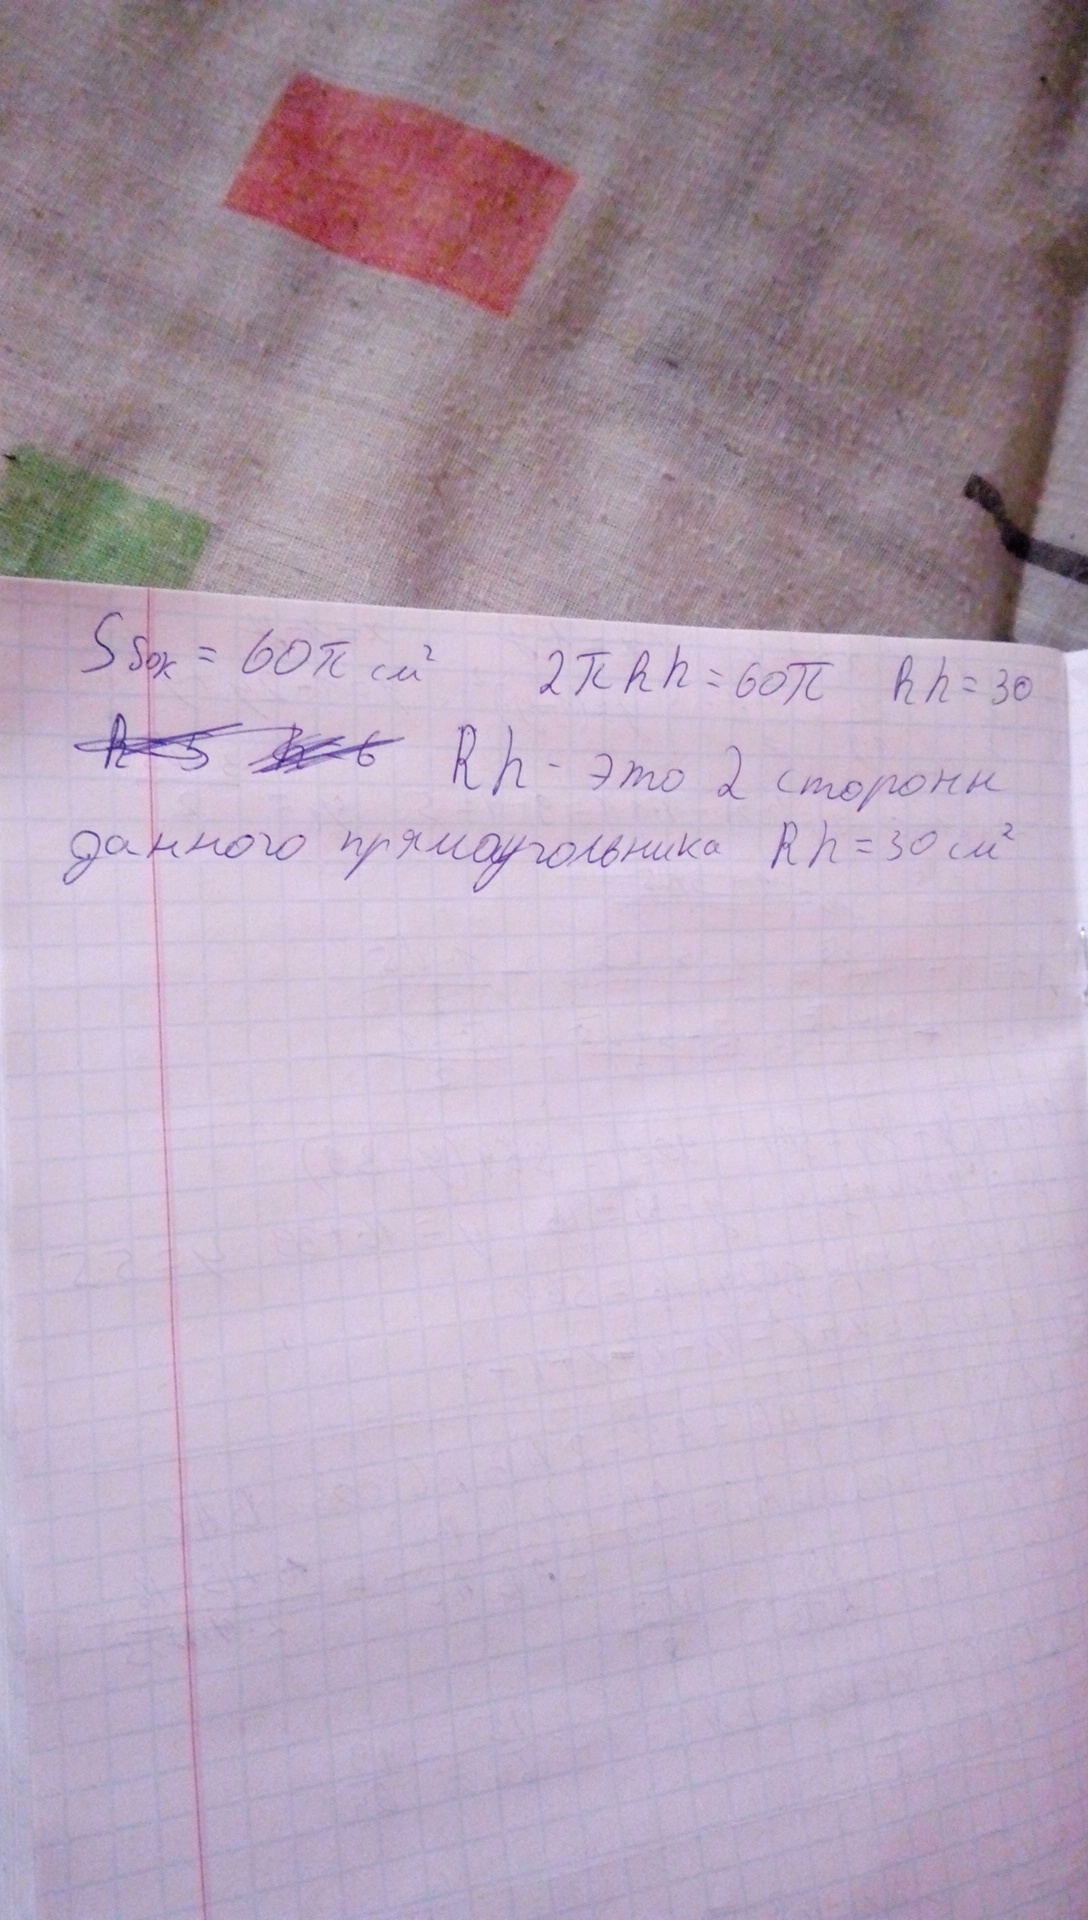 Sбок = 60π см² 2πRh = 60π Rh = 30
Rh - это 2 стороны
данного прямоугольника Rh = 30 см²